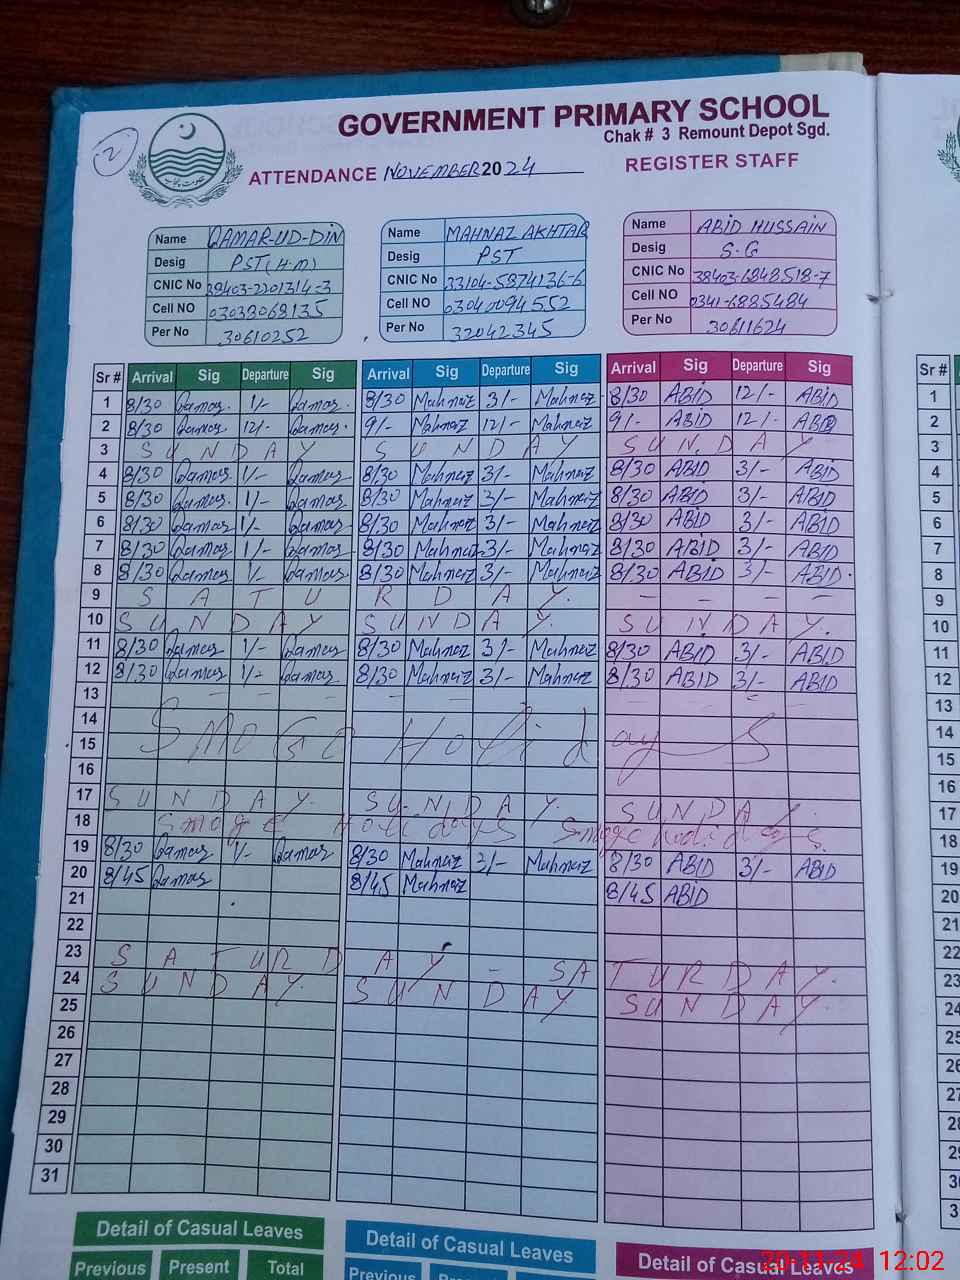 2
GOVERNMENT PRIMARY SCHOOL
Chak # 3 Remount Depot Sgd.
ATTENDANCE NOVEMBER 2024 REGISTER STAFF
Name QAMAR-UD-DIN Name MAHNAZ AKHTAR Name ABID HUSSAIN
Desig PST (H.M) Desig PST Desig S.G
CNIC No 38403-2201314-3 CNIC No 33104-5874136-6 CNIC No 38403-6848518-7
Cell NO 03038068135 Cell NO 03040094552 Cell NO 0341-6885484
Per No 30610252 Per No 32042345 Per No 30611624
Sr # Arrival Sig Departure Sig Arrival Sig Departure Sig Arrival Sig Departure Sig Sr #
1 8/30 Qamar. 1/- Qamar. 8/30 Mahnaz 3/- Mahnaz 8/30 ABID 12/- ABID 1
2 8/30 Qamar 12/- Qamar. 9/- Mahnaz 12/- Mahnaz 9/- ABID 12/- ABID 2
3 SUNDAY SUNDAY SUNDAY 3
4 8/30 Qamar 1/- Qamar 8/30 Mahnaz 3/- Mahnaz 8/30 ABID 3/- ABID 4
5 8/30 Qamar. 1/- Qamar 8/30 Mahnaz 3/- Mahnaz 8/30 ABID 3/- ABID 5
6 8/30 Qamar 1/- Qamar 8/30 Mahnaz 3/- Mahnaz 8/30 ABID 3/- ABID 6
7 8/30 Qamar 1/- Qamar 8/30 Mahnaz 3/- Mahnaz 8/30 ABID 3/- ABID 7
8 8/30 Qamar 1/- Qamar. 8/30 Mahnaz 3/- Mahnaz 8/30 ABID 3/- ABID. 8
9 SATURDAY. - - - - 9
10 SUNDAY SUNDAY. SUNDAY. 10
11 8/30 Qamar 1/- Qamar 8/30 Mahnaz 3/- Mahnaz 8/30 ABID 3/- ABID 11
12 8/30 Qamar 1/- Qamar 8/30 Mahnaz 3/- Mahnaz 8/30 ABID 3/- ABID 12
13 13
14 14
15 SMOGE Holidays 15
16 16
17 SUNDAY. SUNDAY. SUNDAY 17
18 Smoge Holidays Smoge holidays. 18
19 8/30 Qamar 1/- Qamar 8/30 Mahnaz 3/- Mahnaz 8/30 ABID 3/- ABID 19
20 8/45 Qamar 8/45 Mahnaz 8/45 ABID 20
21 21
22 22
23 SATURDAY - SATURDAY. 23
24 SUNDAY. SUNDAY SUNDAY. 24
25 25
26 26
27 27
28 28
29 29
30 30
31 3
Detail of Casual Leaves Detail of Casual Leaves Detail of Casual Leaves
Previous Present Total Previous
20-11-24 12:02